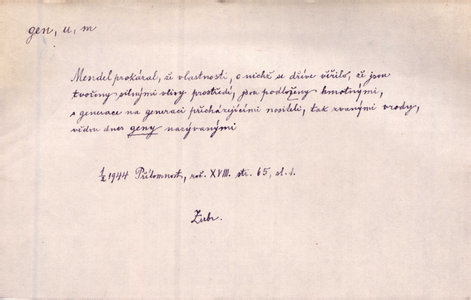 gen, u, m
Mendel prokázal, že vlastnosti, o nichž se dříve věřilo, že jsou
tvořeny silnými vlivy prostředí, jsou podloženy hmotnými,
s generace na generaci přicházejícími nositeli, tak zvanými vrody,
vědou dnes geny nazývanými
1944 Přítomnost, roč. XVIII. str. 65, sl. 1.
Zubr.